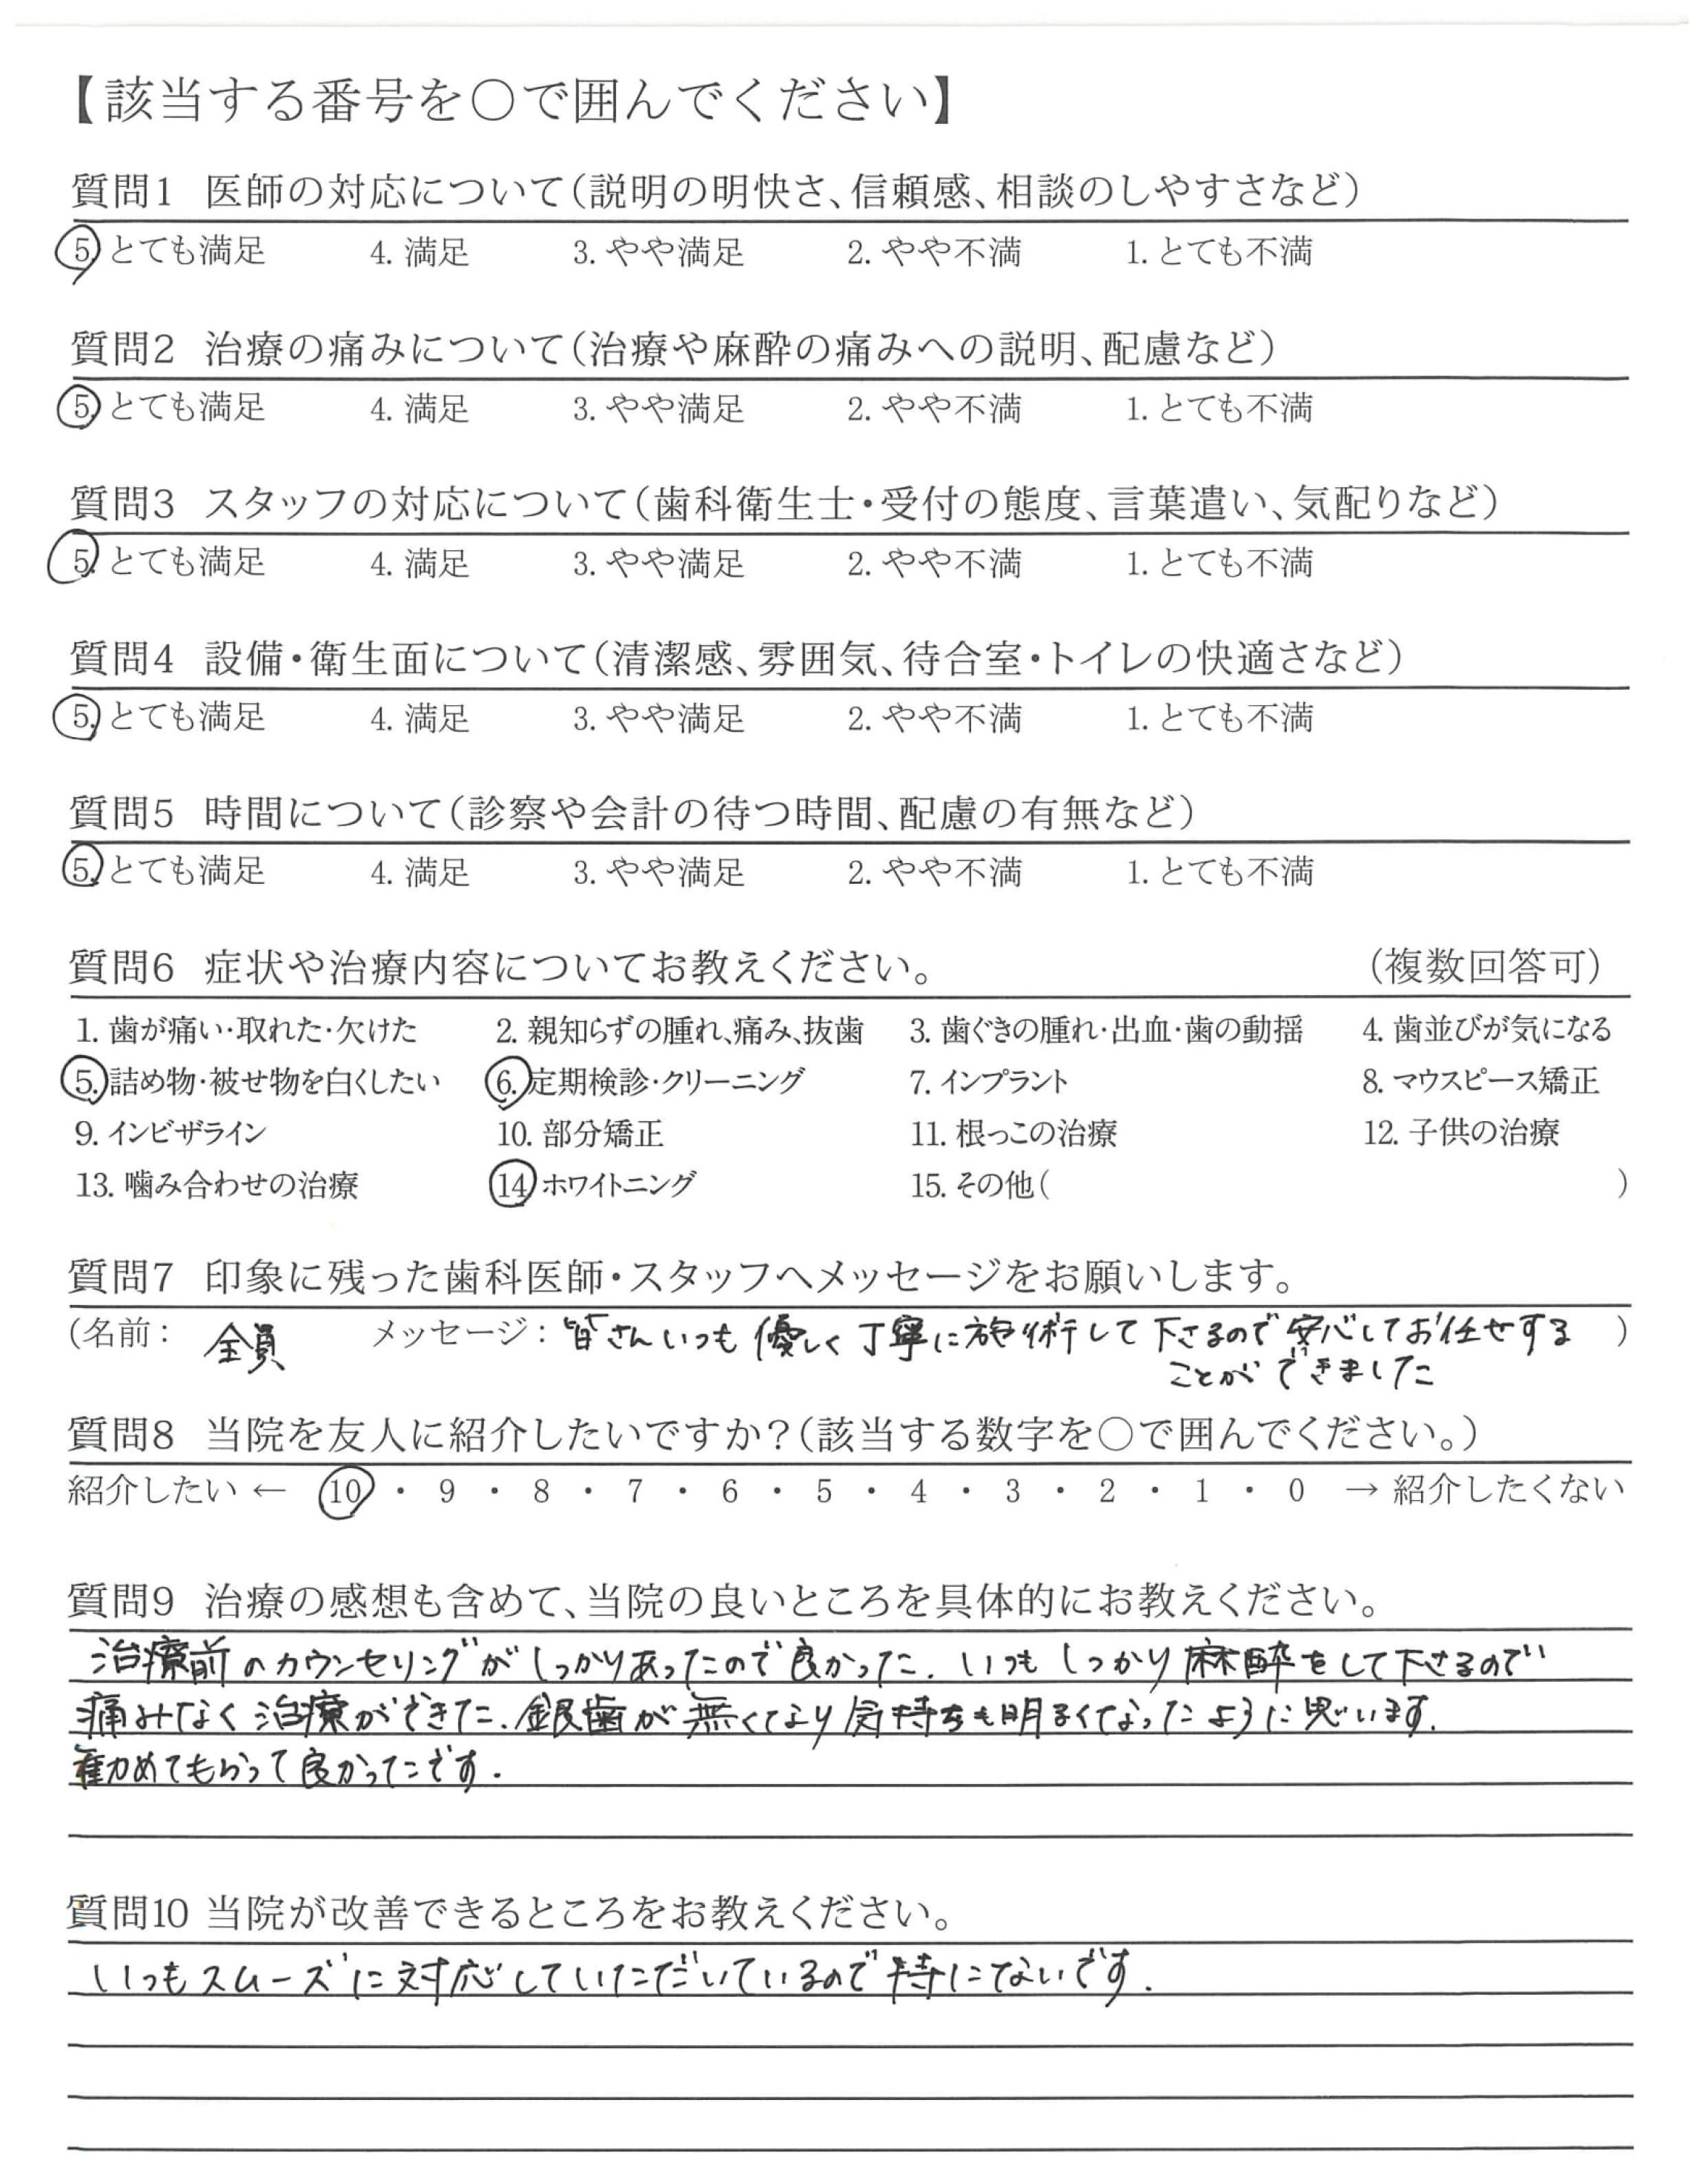 【該当する番号を〇で囲んでください】
質問1 医師の対応について(説明の明快さ、信頼感、相談のしやすさなど)
5. とても満足 4. 満足 3. やや満足 2. やや不満 1. とても不満
質問2 治療の痛みについて(治療や麻酔の痛みへの説明、配慮など)
5. とても満足 4. 満足 3. やや満足 2. やや不満 1. とても不満
質問3 スタッフの対応について(歯科衛生士・受付の態度、言葉遣い、気配りなど)
5. とても満足 4. 満足 3. やや満足 2. やや不満 1. とても不満
質問4 設備・衛生面について(清潔感、雰囲気、待合室・トイレの快適さなど)
5. とても満足 4. 満足 3. やや満足 2. やや不満 1. とても不満
質問5 時間について(診察や会計の待つ時間、配慮の有無など)
5. とても満足 4. 満足 3. やや満足 2. やや不満 1. とても不満
質問6 症状や治療内容についてお教えください。 (複数回答可)
1. 歯が痛い・取れた・欠けた 2. 親知らずの腫れ、痛み、抜歯 3. 歯ぐきの腫れ・出血・歯の動揺 4. 歯並びが気になる
5. 詰め物・被せ物を白くしたい 6. 定期検診・クリーニング 7. インプラント 8. マウスピース矯正
9. インビザライン 10. 部分矯正 11. 根っこの治療 12. 子供の治療
13. 噛み合わせの治療 14 ホワイトニング 15. その他( )
質問7 印象に残った歯科医師・スタッフへメッセージをお願いします。
(名前: 全員 メッセージ: 皆さんいつも優しく丁寧に施術して下さるので安心してお任せする )
ことができました
質問8 当院を友人に紹介したいですか?(該当する数字を〇で囲んでください。)
紹介したい ← 10 ・ 9 ・ 8 ・ 7 ・ 6 ・ 5 ・ 4 ・ 3 ・ 2 ・ 1 ・ 0 → 紹介したくない
質問9 治療の感想も含めて、当院の良いところを具体的にお教えください。
治療前のカウンセリングがしっかりあったので良かった. いつもしっかり麻酔をして下さるので
痛みなく治療ができた. 銀歯が無くなり気持ちも明るくなったように思います.
勧めてもらって良かったです.
質問10 当院が改善できるところをお教えください。
いつもスムーズに対応していただいているので特にないです.